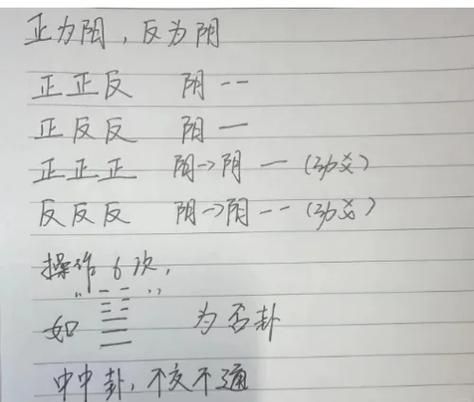 正为阳，反为阴
正正反 阴 --
正反反 阳 —
正正正 阳→阴 — (动爻)
反反反 阴→阳 -- (动爻)
操作6次，
如 为否卦
中中卦，不交不通